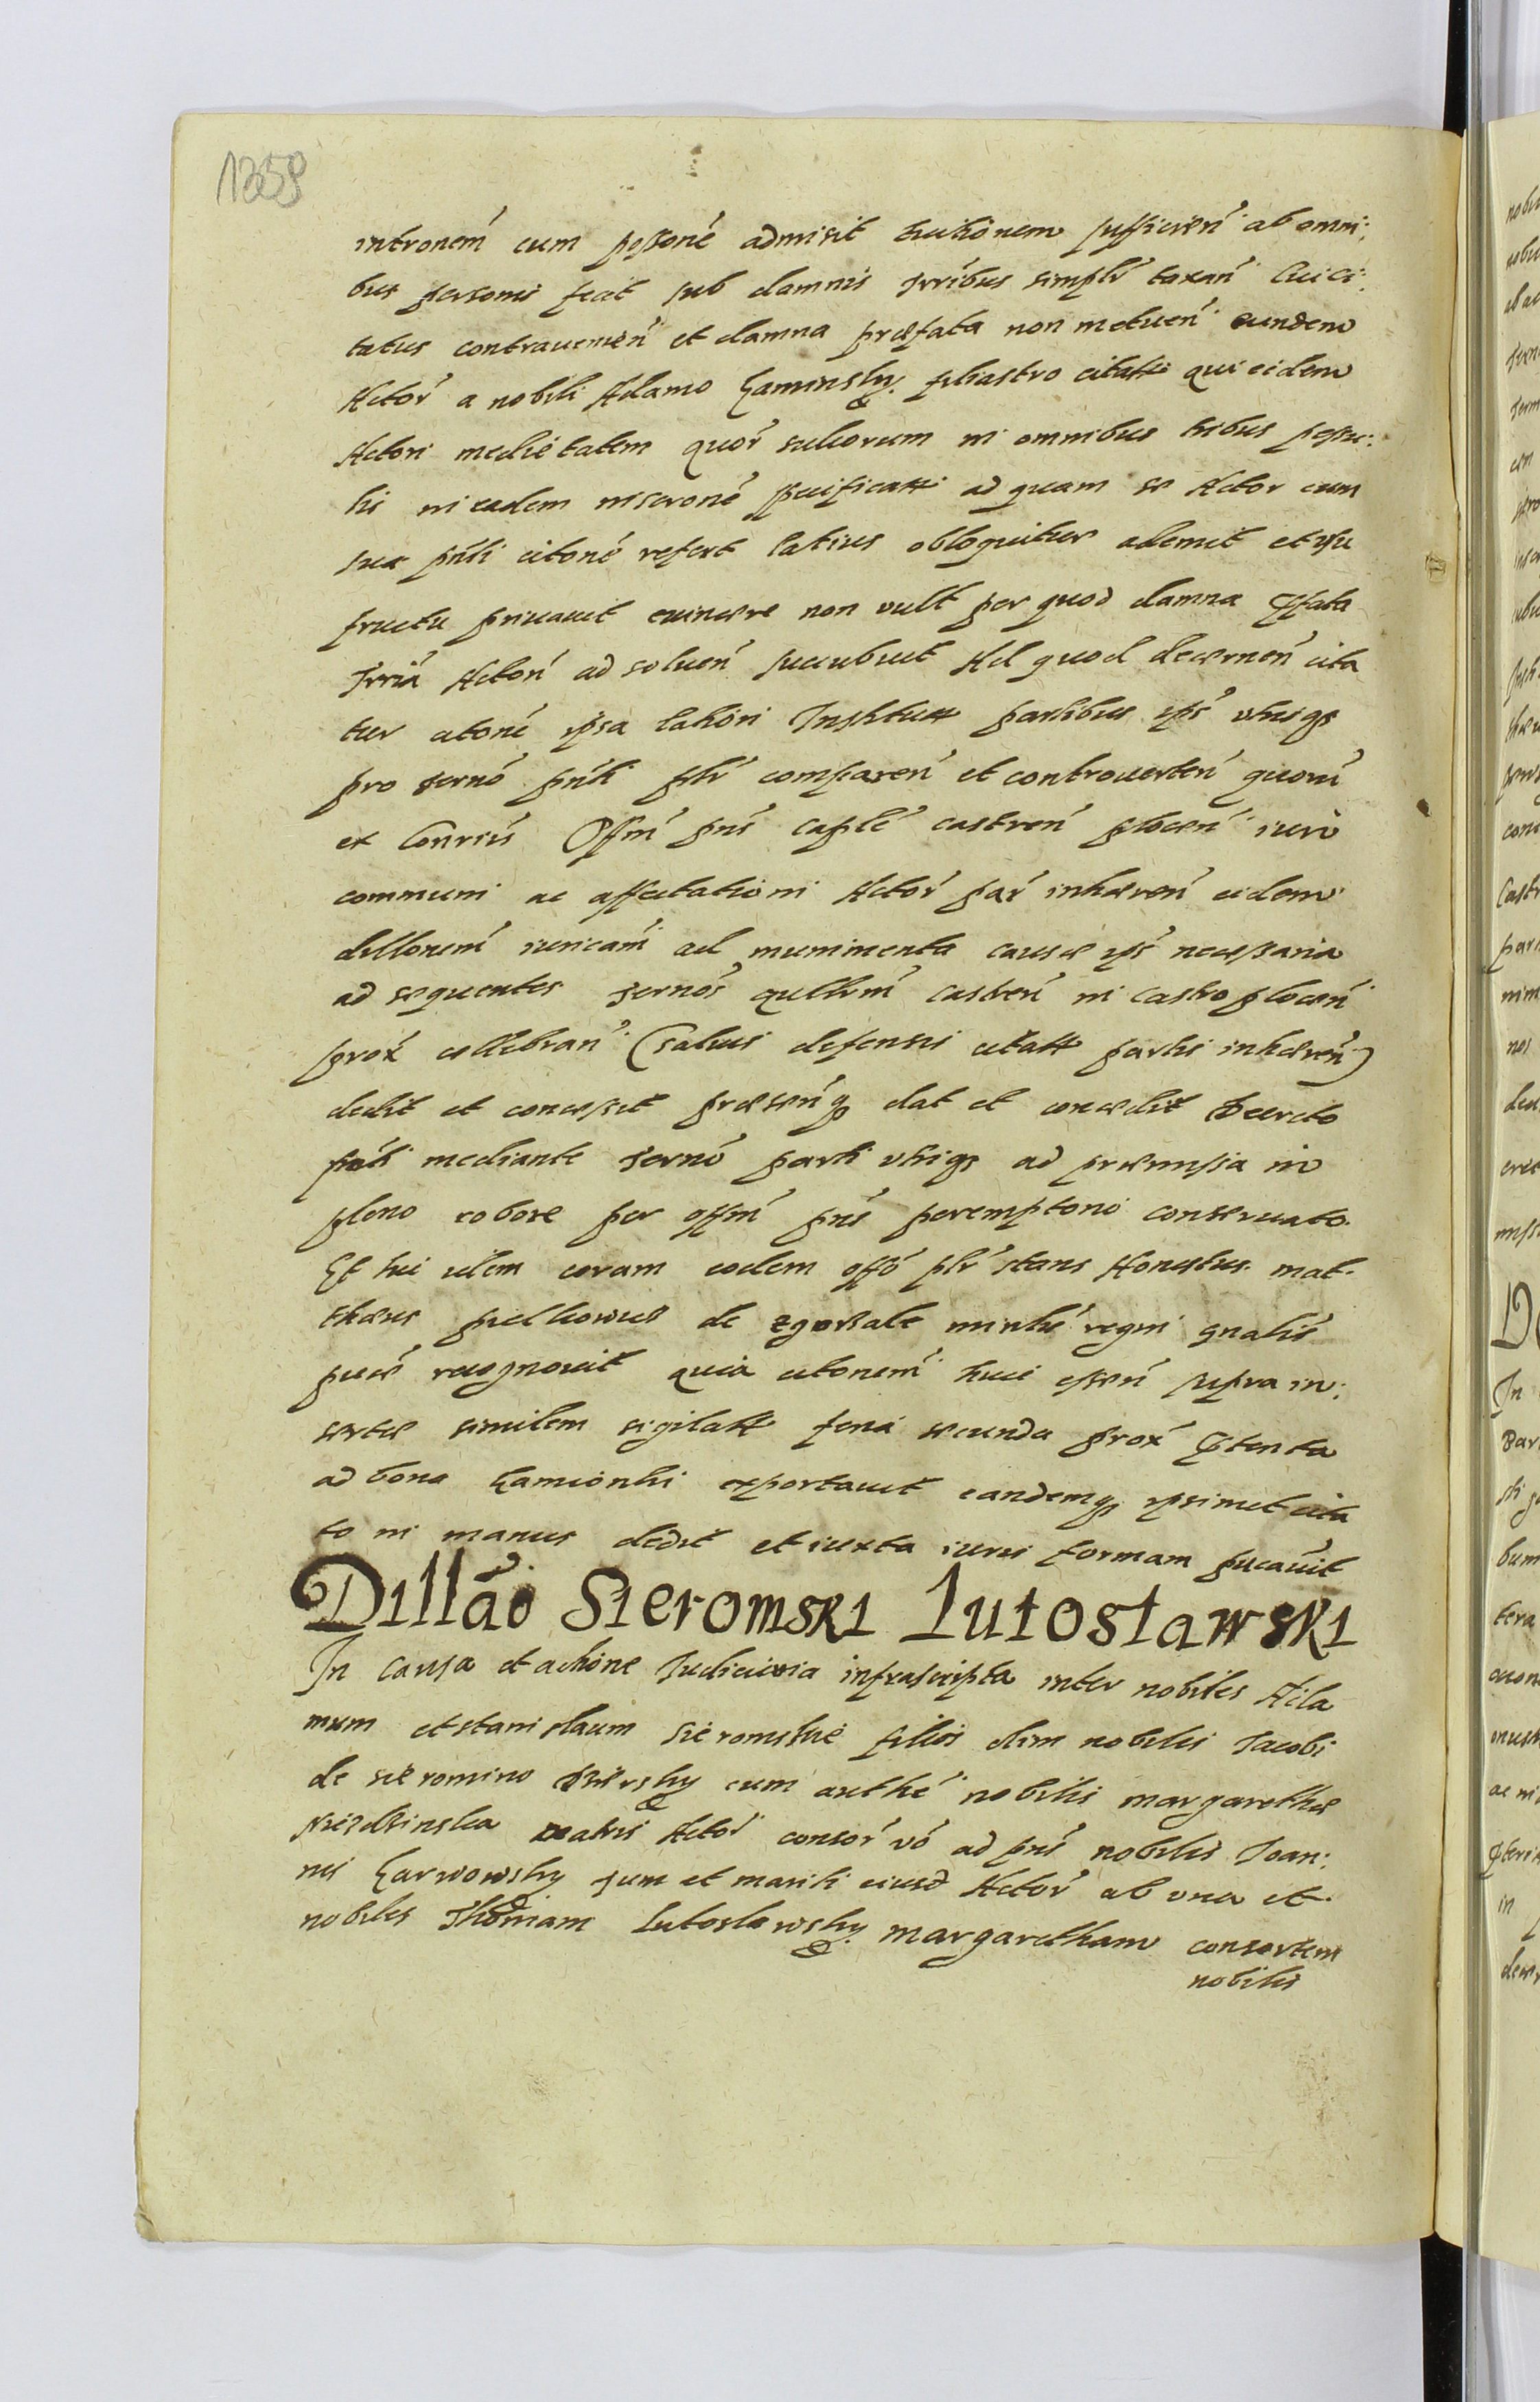 1359
intronem̃ cum possonẽ admisit tuitionem sufficieñ ab omni:
bus personis fecit sub damnis trribus simplr̃ taxañ Cui ci:
tatus contraveniẽn et damna præfata non metueñ eundem
Actor̃ a nobili Adamo Kaminsky filiastro citatti qui eidem
Actori medietatem quor̃ sulcorum in omnibus tribus
in eadem inscronẽ specificatti ad quam se Actor cum
sua pñti citonẽ refert latius obloquitur ademit et usu
fructu privavit evincere non vult per quod damna pfata
trriã Actori ad solveñ succubuit Ad quod decerneñ cita
tur citonẽ ipsa latiori Instituti partibus ips̃ utrisqs
pro ternõ pñti plr̃ compareñ et controverteñ quorũ
ex Conrsijs Offm̃ pñs captẽ castreñ ploceñ iuri
communi ac affectationi Actor̃ par̃ inhæreñ eidem
dillonem̃ iuricam̃ ad munimenta causæ ips̃ necessaria
ad sequentes ternos̃ qullrm̃ castreñ in Castro ploceñ
prox̃ cellebrañ (salvis defensis citatti partis inhæreñ)
dedit et concessit præseñqs dat et concedit Decreto
pñti mediante ternõ parti utrisqs ad præmissa in
pleno robore per offm̃ pñs peremptorio conservato.
Et hic idem coram eodem offõ plr̃ stans Honestus mat:
thæus de minlis̃ regni gnalis̃
recognovit quia citonem̃ huic esseñ supra in:
sertæ similem sigilatt feria secunda prox̃ pterita
ad bona Kamionki exportavit eandemqs ipsimet cita
to in manus dedit et iuxta iuris formam pucavit
Dillaõ Sieromski Lutostawski
In causa et actione Iudiciaria infrascripta inter nobiles Ada
mum et stanislaum Sieromskie filios olim nobilis Iacobi
de sieromino cum authẽ nobilis margarethæ
matris Actor̃ consor̃ võ ad pñs nobilis Ioan:
nis Karwowsky tum et mariti eiusd Actor̃ ab una et
nobiles Thomam Lutoslawsky margaretham consortem
nobilis